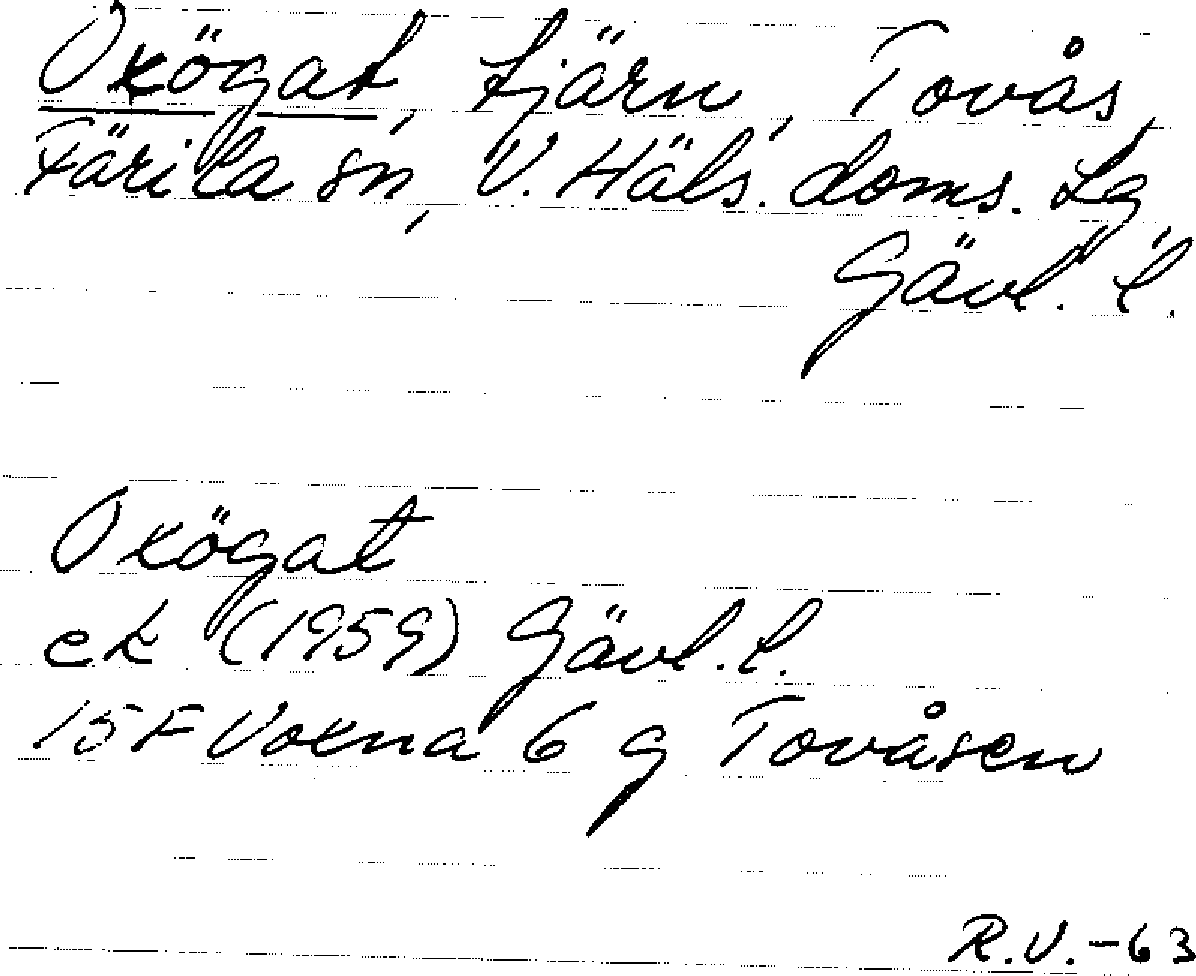 Oxögat, tjärn, Tovås,
Färila sn, V. Häls. doms. Lg,
Gävl. l.
Oxögat
ek (1959) Gävl. l.
15 F Voxna 6 g Tovåsen
R.V. -63